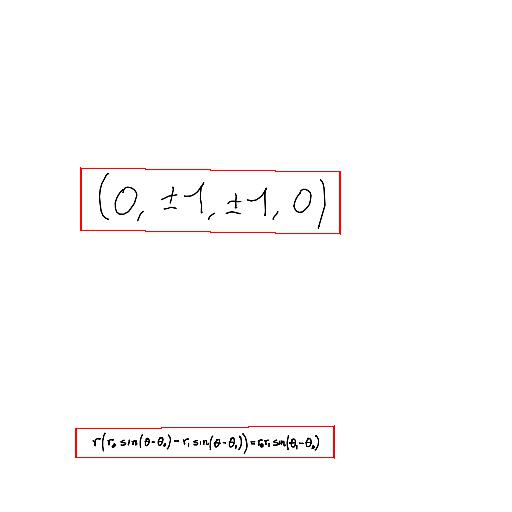 (0, ±1, ±1, 0)
r(r₀ sin(θ-θ₀) - r₁ sin(θ-θ₁)) = r₀r₁ sin(θ₁-θ₀)